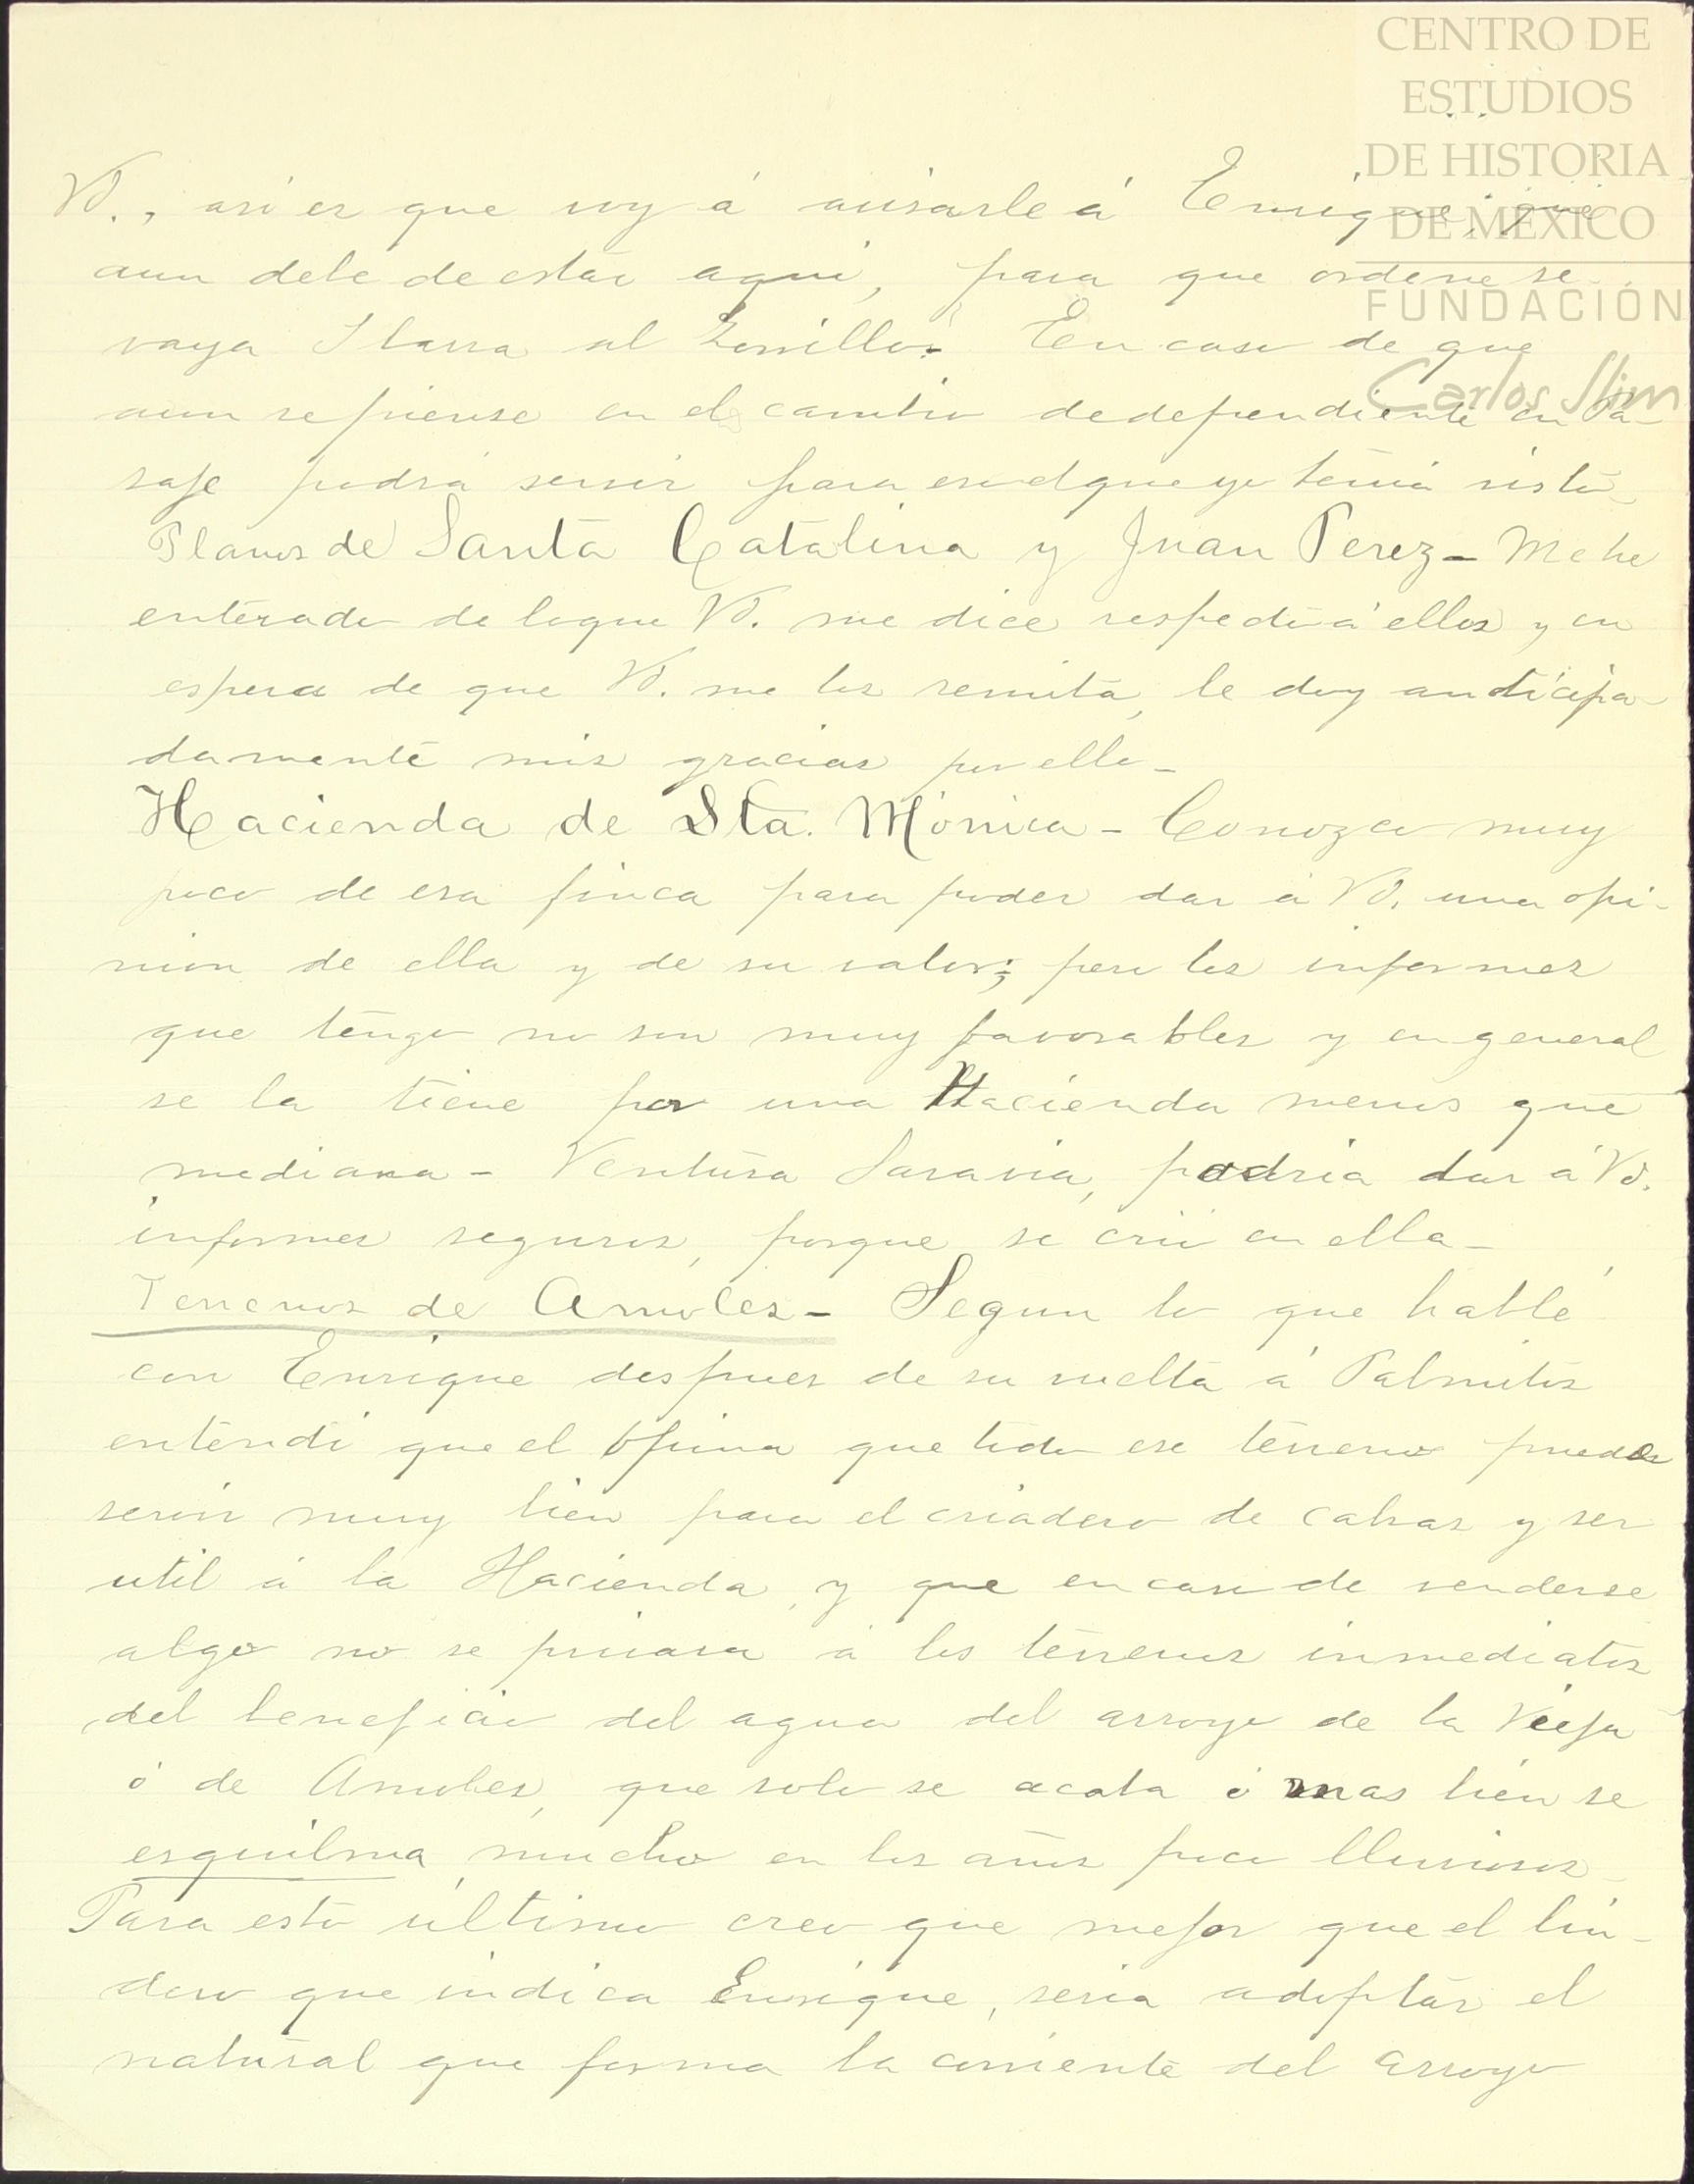 CENTRO DE
ESTUDIOS
DE HISTORIA
DE MÉXICO
FUNDACIÓN
Carlos Slim
Vd., asi es que voy á avisarle á Enrique, que
aun debe de estar aqui, para que ordene se
vaya Ibarra al Zorrillo. En caso de que
aun se piense en el cambio de dependiente en Pa-
saje podrá servir para eso el que yo tenia visto
Planos de Santa Catalina y Juan Perez - Me he
enterado de lo que Vd. me dice respecto á ellos y en
espera de que Vd. me los remita, le doy anticipa-
damente mis gracias por ello -
Hacienda de Sta. Mónica - Conozco muy
poco de esa finca para poder dar á Vd. una opi-
nion de ella y de su valor; pero los informes
que tengo no son muy favorables y en general
se la tiene por una Hacienda menos que
mediana - Ventura Saravia, podria dar á Vd.
informes seguros, porque se crió en ella -
Terrenos de Amoles - Segun lo que hablé
con Enrique despues de su vuelta á Palmitos
entendi que el opina que todo ese terreno puede
servir muy bien para el criadero de cabras y ser
util á la Hacienda, y que en caso de venderse
algo no se privara á los terrenos inmediatos
del beneficio del agua del arroyo de la Vieja
ó de Amoles, que solo se acaba ó mas bien se
esquilma mucho en los años poco lluviosos -
Para esto último creo que mejor que el lin-
dero que indica Enrique, seria adoptar el
natural que forma la corriente del arroyo